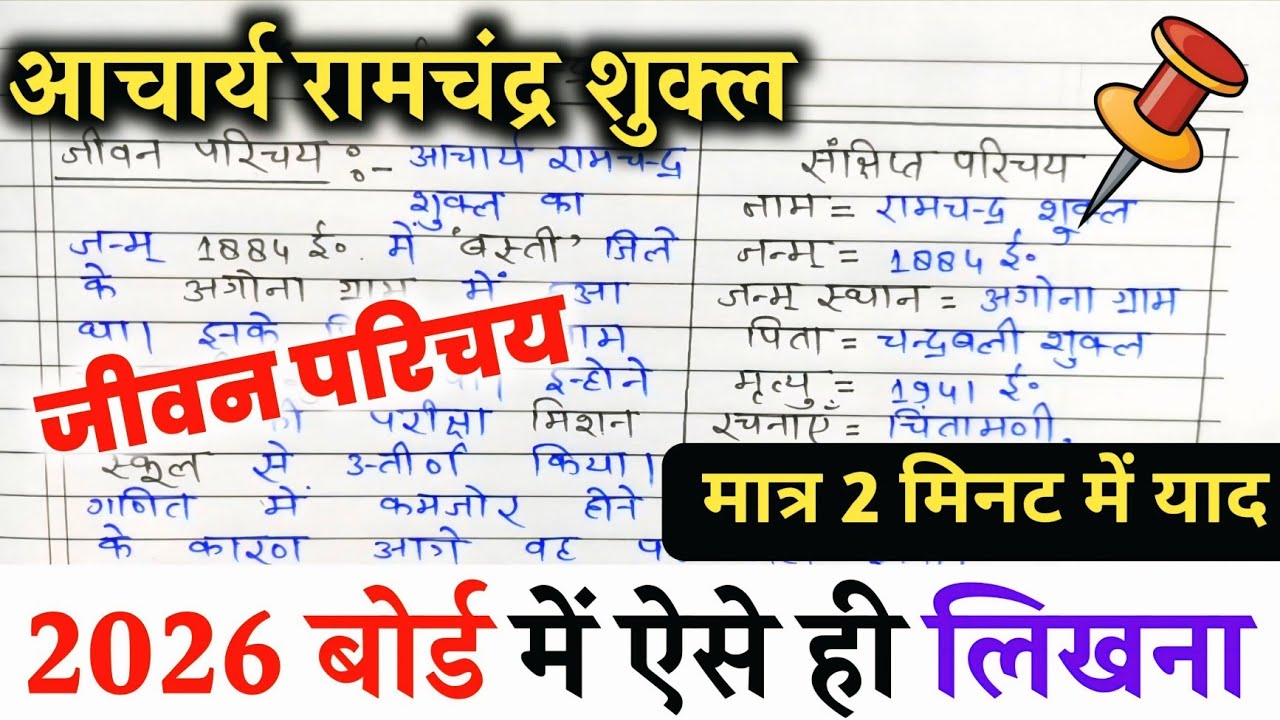 आचार्य रामचंद्र शुक्ल
जीवन परिचय :- आचार्य रामचन्द्र
शुक्ल का
जन्म् 1884 ई० में 'बस्ती' जिले
के अगोना ग्राम में
था। इनके
इन्होने
परीक्षा मिशन
स्कूल से उत्तीर्ण किया।
गणित में कमजोर होने
के कारण आगे वह
संक्षिप्त परिचय
नाम = रामचन्द्र शुक्ल
जन्म् = 1884 ई०
जन्म् स्थान = अगोना ग्राम
पिता = चन्द्रबली शुक्ल
मृत्यु = 1941 ई०
रचनाएँ = चिंतामणी,
जीवन परिचय
मात्र 2 मिनट में याद
2026 बोर्ड में ऐसे ही लिखना